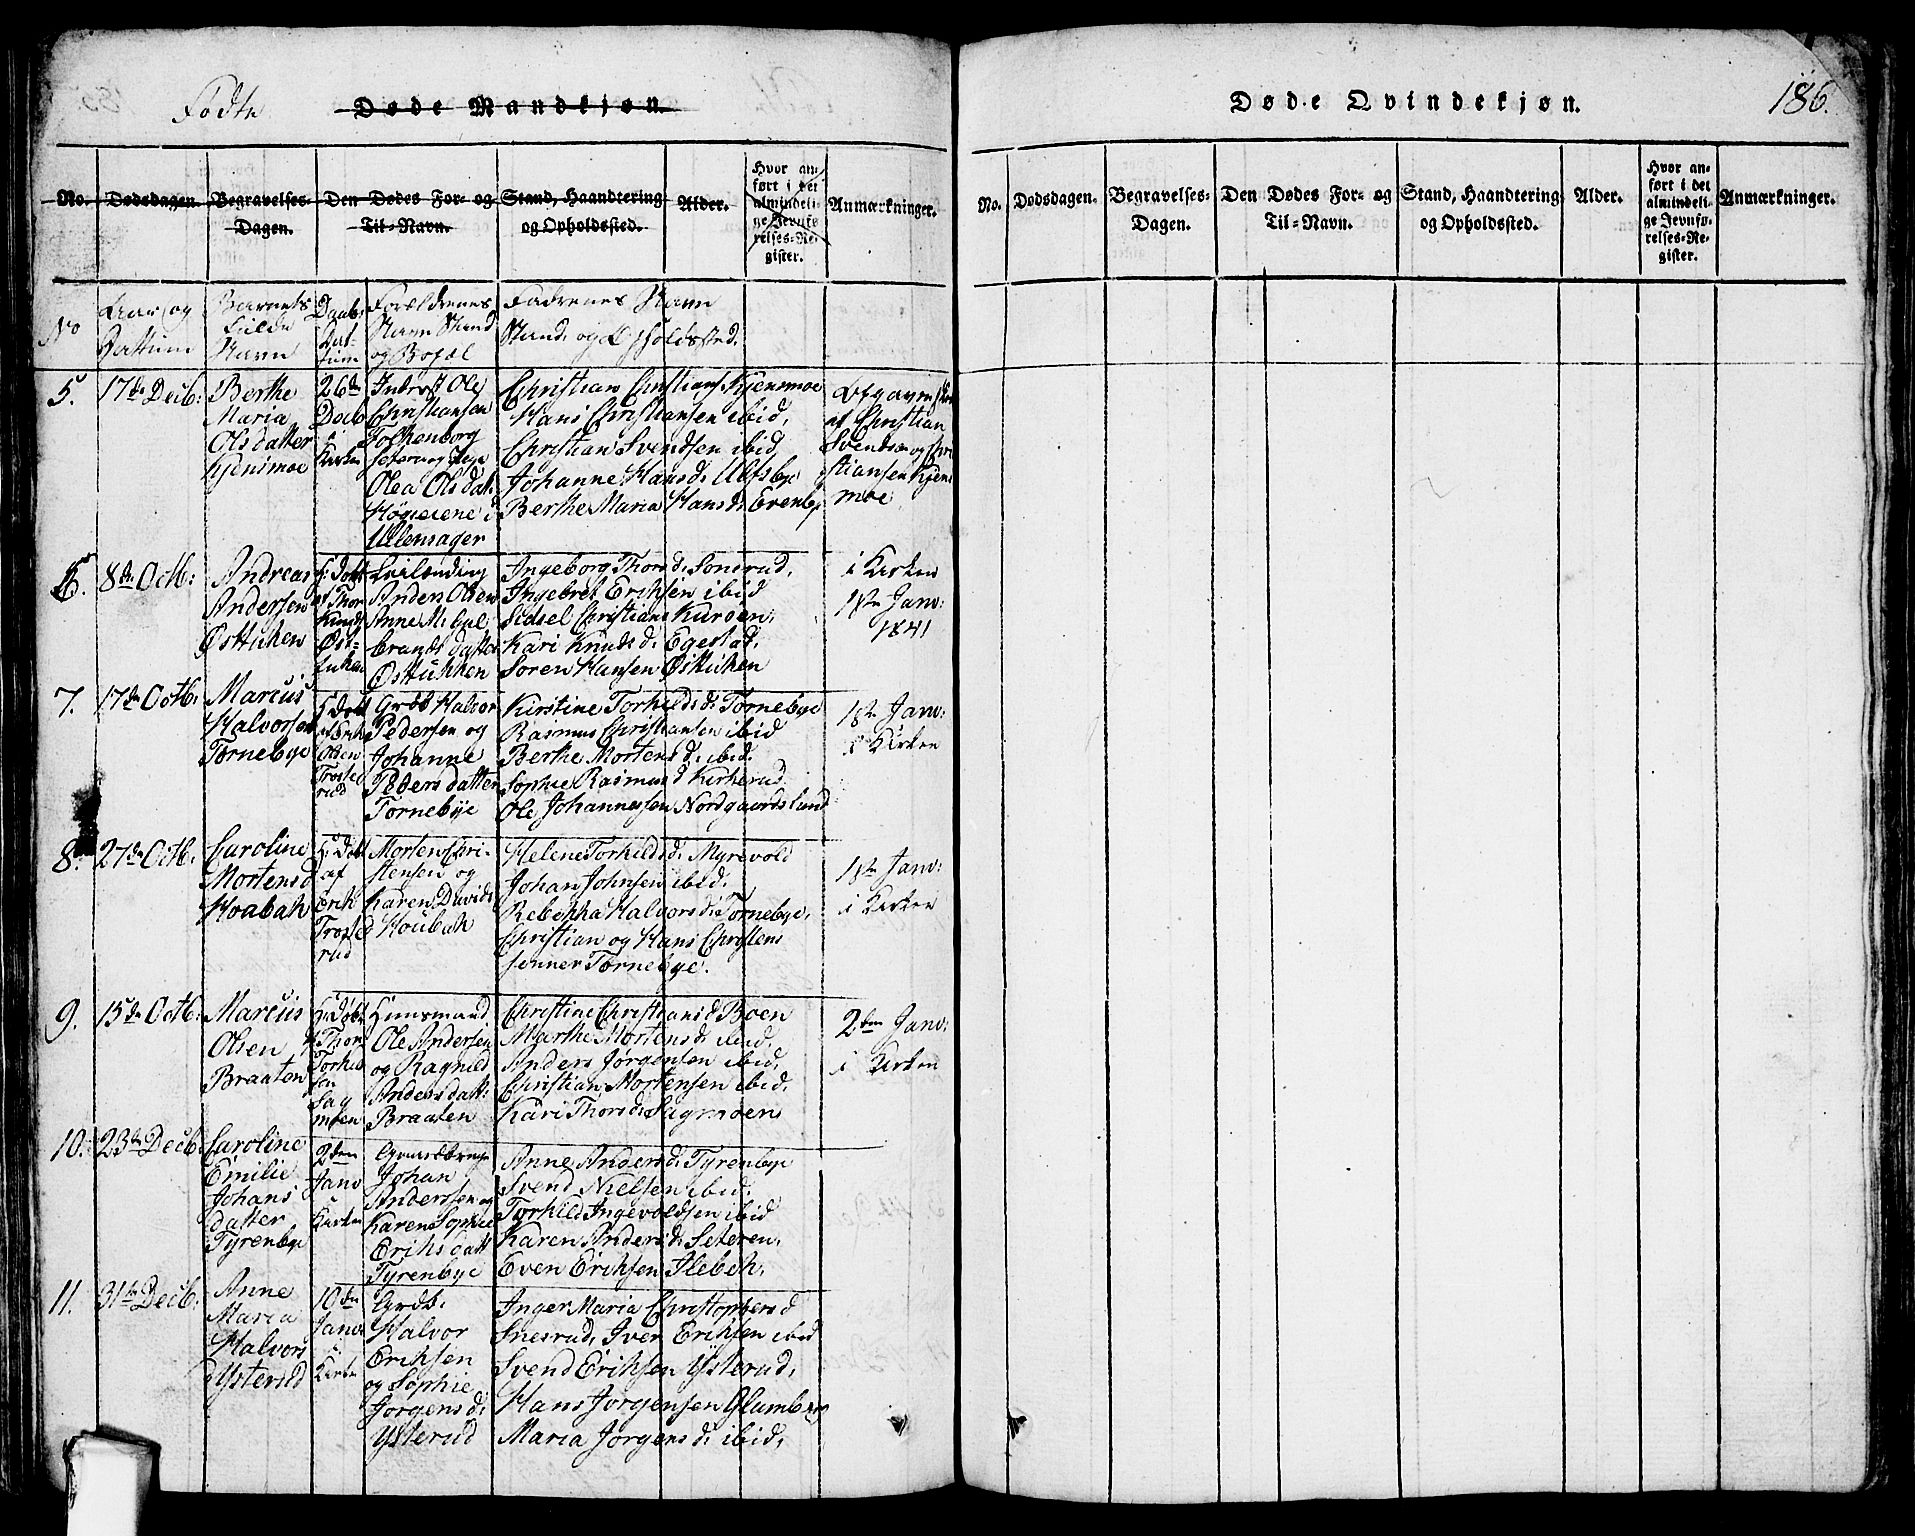 Fødte
Døde Mandkjøn.
No. Dødsdagen. Begravelses-Dagen. Den Dødes For- og Til-Navn. Stand, Haandtering og Opholdssted. Alder. Hvor anført i det almindelige Jevnførelses-Register. Anmærkninger.
No Aar og Dattum Barnets fulde Navn Daab: Dattum Forældrenes Navn Stand og Bopæl Fadrenes Navn Stand og Opholdssted.
5. 17de Decb:
Berthe
Maria
Olsdatter
Kjensmoe
26de
Decb
i
Kirken
Inderst Ole
Christiansen
Folkenborg
Olea Olsdat.
i
Ullensager
Christian Christians Kjensmoe
Hans Christiansen ibid,
Christian Svendsen ibid
Johanne Hansd: Ulfsbye
Berthe Maria Hansd: Evenby
af Christian
Svendsen og Chri
stiansen Kjens
moe
6. 8de Octb:
Andreas
Andersen
Østtuken
H: Døbt
af Thor
Knud
Øst-
tuken
Leilænding
Anders Olsen
Anne M. Gul
brands datter
Østtukken
Ingeborg Thorsd: Sonsrud,
Ingebret Eriksen ibid
Sidsel Christians Kuroen,
Kari Knudsd: Egestad,
Soren Hansen Østtuken
i Kirken
1ste Janv:
1841
7. 17de Octb:
Marcus
Halvorsen
Tornebye
H: Døbt
af Erik
Olsen
Troste
rud
Grdb Halvor
Pedersen og
Johanne
Peders datter
Tornebye
Kirstine Torkildsd: Tornebye
Rasmus Christiansen ibid
Berthe Mortensd: ibid.
Sophie Rasmusd Kirkerud
Ole Johannessen Nordgaardslund
1ste Janv:
i Kirken
8. 27de Octb:
Caroline
Mortensd
Hoabak
H: Døbt
af
Erik
Trost
rud
Morten Chri-
stensen og
Karen Davids
d Houbak
Helene Torkildsd: Myrevold
Johan Johnsen ibid.
Rebekka Halvorsd: Tornebye,
Christian og Hans Christens
sønner Tornebye.
1ste Janv:
i Kirken
9. 15de Octb:
Marcus
Olsen
Braaten
H: Døbt
af Thor
Torkild
sen
Sag
moen
Huusmand
Ole Andersen
og Ragnild
Andersdatt:
Braaten
Christine Christiansd Boen
Marthe Mortensd: ibid,
Anders Jørgensen ibid,
Christian Mortensen ibid,
Kari Thorsd: Sagmoen
2den Janv:
i Kirken
10. 23de Decb
Caroline
Emilie
Johans
datter
Tyrenbye
2den
Janv
i
Kirken
Gaardbruger
Johan
Anderssen og
Karen Sophie
Eriks datt
Tyrenbye
Anne Andersd: Tyrenbye
Svend Nielsen ibid.
Torkild Ingevoldsen ibid
Karen Andersd: Seteren,
Even Eriksen Ilebek,
11. 31te Decb:
Anne
Maria
Halvors
d Ysterud
10de
Janv:
i
Kirken
Grdb:
Halvor
Eriksen
og Sophie
Jorgensd:
Ysterud
Inger Maria Christophersd
Snesrud, Iver Eriksen ibid
Svend Eriksen Ysterud,
Hans Jorgensen Glumberg
Maria Jorgensd: ibid,
Døde Qvindekjøn.
186.
No. Dødsdagen. Begravelses-Dagen. Den Dødes For- og Til-Navn. Stand, Haandtering og Opholdssted. Alder. Hvor anført i det almindelige Jevnførelses-Register. Anmærkninger.